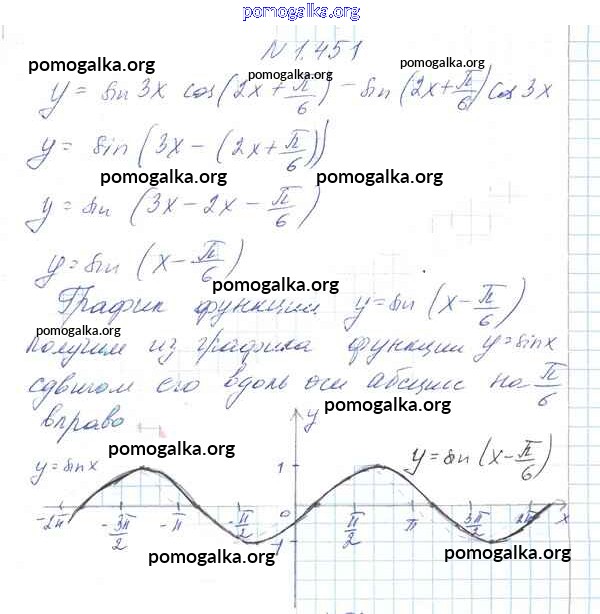 pomogalka.org
N 1.451
pomogalka.org pomogalka.org pomogalka.org
y = sin 3x cos (2x + π/6) - sin (2x + π/6) cos 3x
y = sin (3x - (2x + π/6))
pomogalka.org pomogalka.org
y = sin (3x - 2x - π/6)
y = sin (x - π/6)
pomogalka.org
График функции y = sin (x - π/6)
pomogalka.org
получим из графика функции y = sin x
сдвигом его вдоль оси абсцисс на π/6
pomogalka.org
вправо
y
pomogalka.org
y = sin x 1 y = sin (x - π/6)
-2π -3π/2 -π -π/2 0 π/2 π 3π/2 2π x
-1
pomogalka.org pomogalka.org